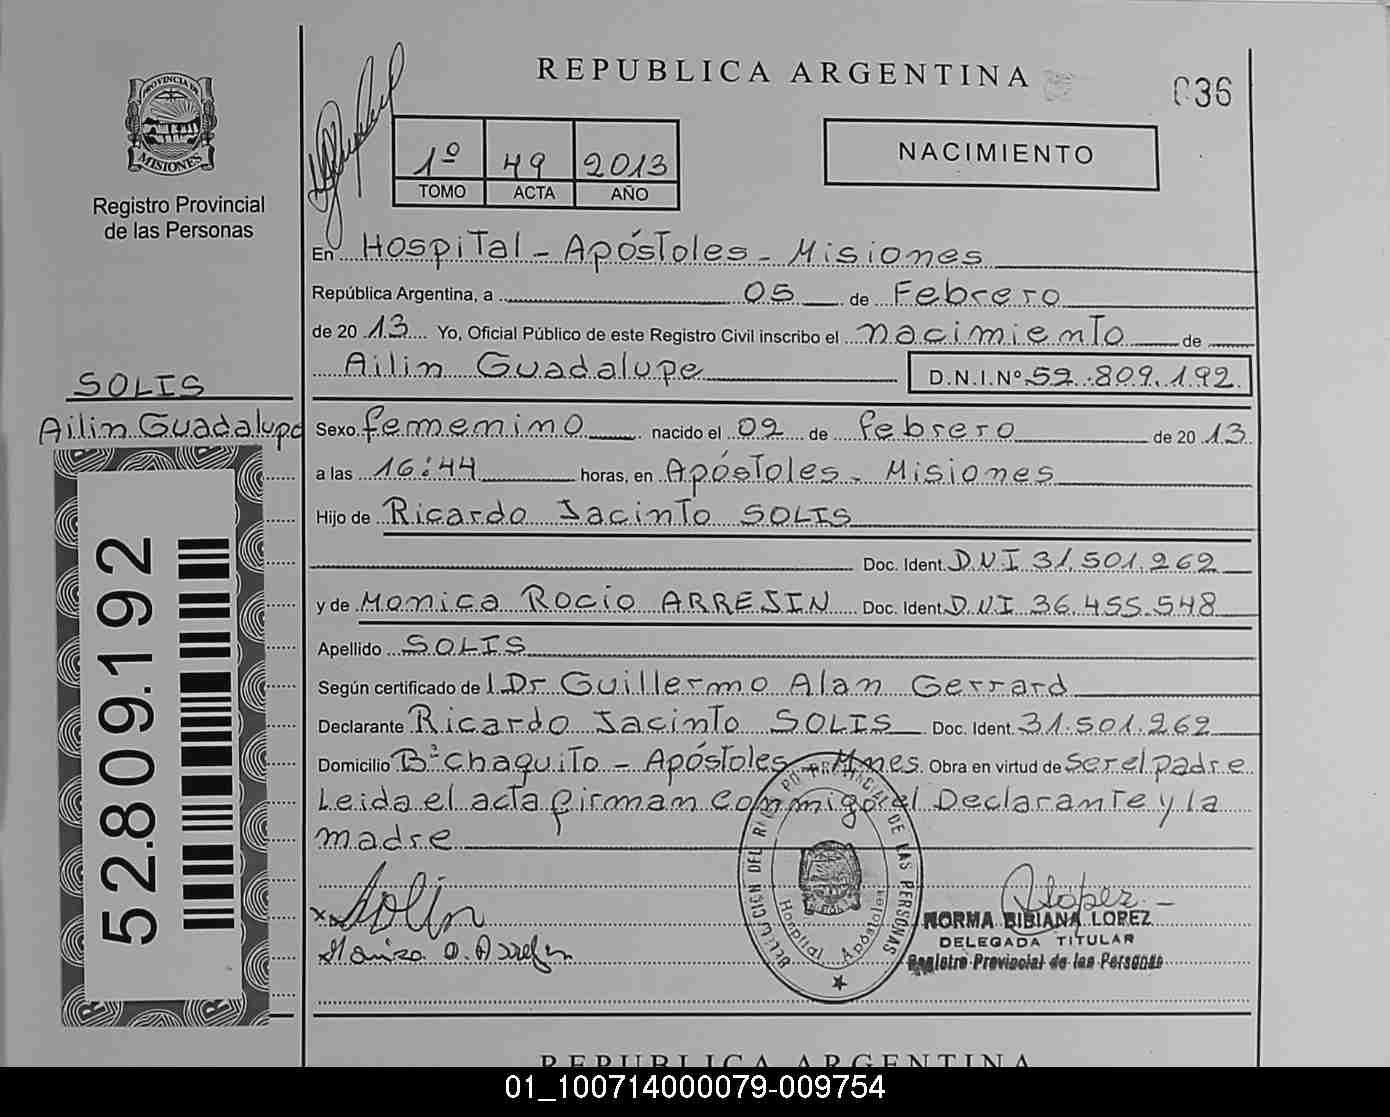 REPUBLICA ARGENTINA
036
PROVINCIA DE
MISIONES
Registro Provincial
de las Personas
1º 49 2013
TOMO ACTA AÑO
NACIMIENTO
En Hospital - Apóstoles - Misiones
República Argentina, a 05 de Febrero
de 2013 Yo, Oficial Público de este Registro Civil inscribo el nacimiento de
Ailin Guadalupe D.N.I.Nº 52.809.192
SOLIS
Ailin Guadalupe
Sexo femenino nacido el 02 de febrero de 2013
a las 16:44 horas, en Apóstoles - Misiones
Hijo de Ricardo Jacinto SOLIS
Doc. Ident. DNI 31.501.262
y de Monica Rocio ARRESIN Doc. Ident. DNI 36.455.548
Apellido SOLIS
Según certificado de l Dr Guillermo Alan Gerrard
Declarante Ricardo Jacinto SOLIS Doc. Ident. 31.501.262
Domicilio Bº Chaquito - Apóstoles - Mnes Obra en virtud de ser el padre
Leida el acta firman conmigo el Declarante y la
madre
52.809.192
DE LAS PERSONAS
Hospital Apóstoles
NORMA BIBIANA LOPEZ
DELEGADA TITULAR
Registro Provincial de las Personas
REPUBLICA ARGENTINA
01_100714000079-009754